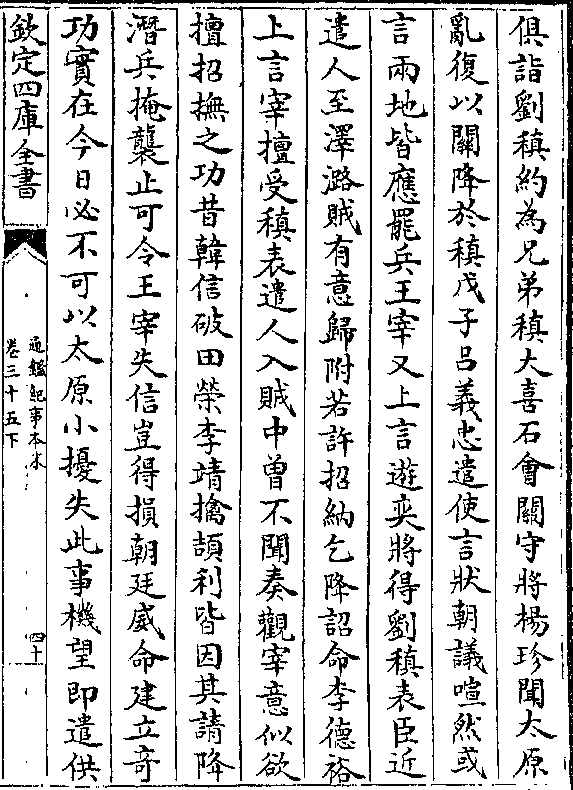 俱詣劉稹約為兄弟稹大喜石會關守將楊珍聞太原
亂復以關降於稹戊子吕義忠遣使言狀朝議喧然或
言兩地皆應罷兵王宰又上言遊奕將得劉稹表臣近
遣人至澤潞賊有意歸附若許招納乞降詔命李德裕
上言宰擅受稹表遣人入賊中曾不聞奏觀宰意似欲
擅招撫之功昔韓信破田榮李靖擒頡利皆因其請降
潛兵掩襲止可令王宰失信豈得損朝廷威命建立奇
功實在今日必不可以太原小擾失此事機望即遣供
欽定四庫全書
通鑑紀事本末
卷三十五下
四十